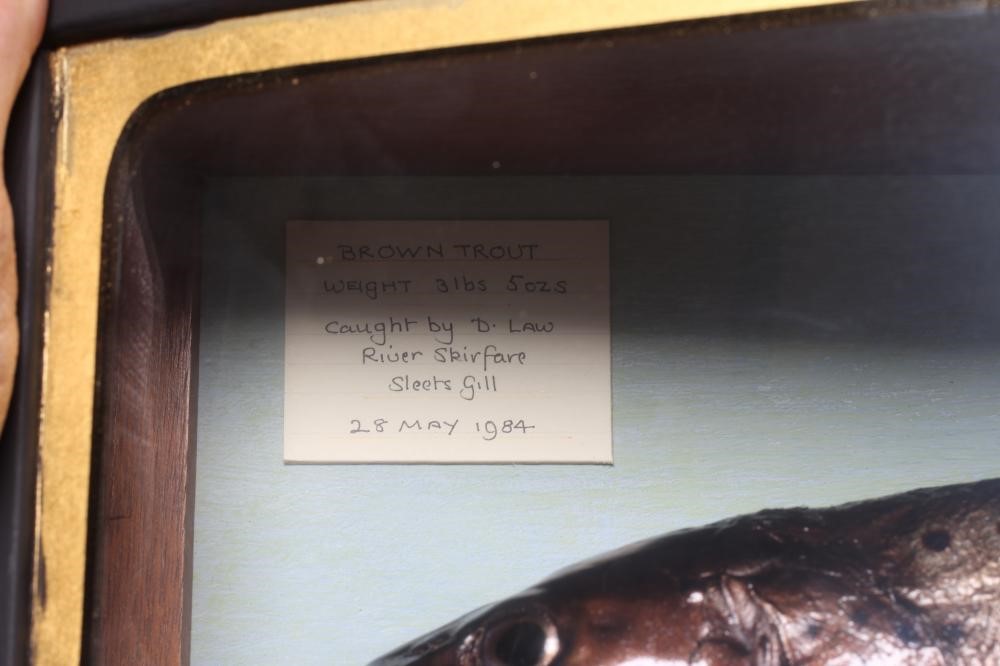 BROWN TROUT
WEIGHT 3lbs 5ozs
Caught by D. LAW
River Skirfare
Sleets Gill
28 MAY 1984